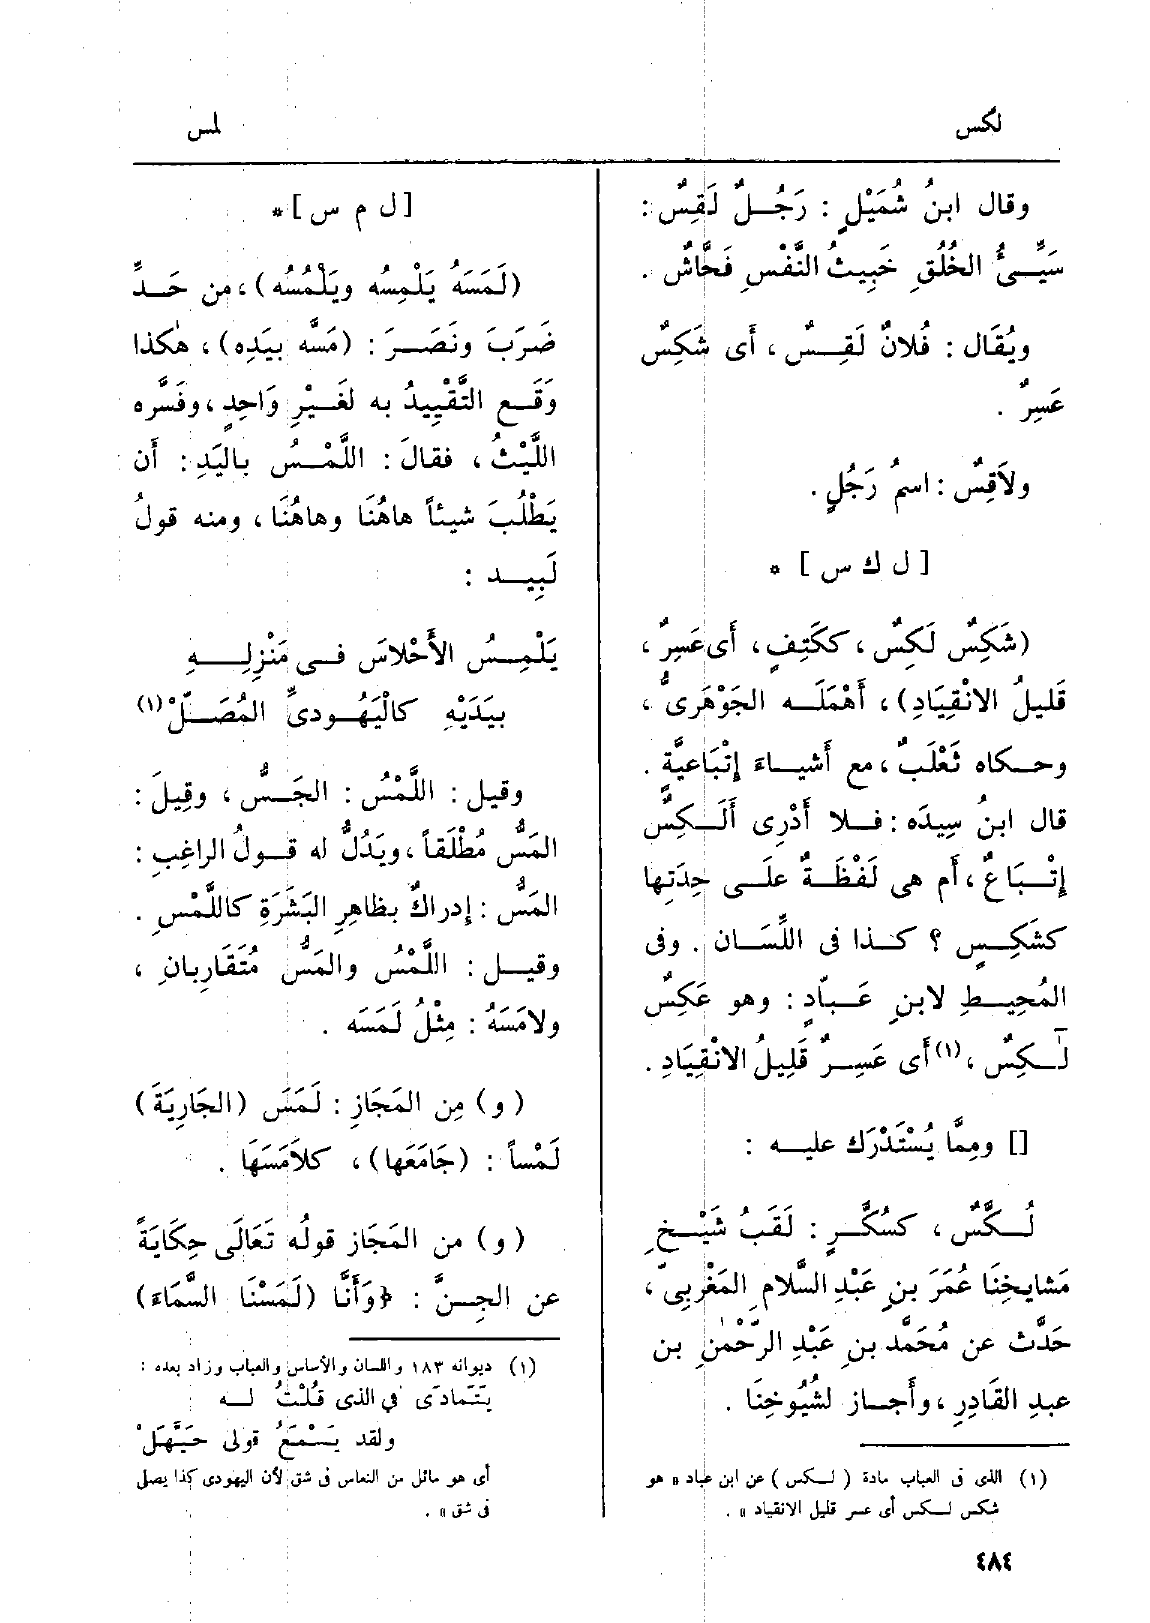 لكس
لمس
وقال ابنُ شُمَيْلٍ : رَجُلٌ لَقِسٌ :
سَيِّئُ الخُلُقِ خَبِيثُ النَّفْسِ فَحَّاشٌ .
ويُقَال : فُلانٌ لَقِسٌ ، أَى شَكِسٌ
عَسِرٌ .
ولاَقِسٌ : اسمُ رَجُلٍ .
[ ل ك س ] *
(شَكِسٌ لَكِسٌ ، ككَتِفٍ ، أَى عَسِرٌ ،
قَليلُ الانْقِيَادِ) ، أَهْمَلَه الجَوْهَرىُّ ،
وحكاه ثَعْلَبٌ ، مع أَشياءَ إِتْبَاعيَّةٍ .
قال ابنُ سِيدَه : فلا أَدْرِى أَلَكِسٌ
إِتْبَاعٌ ، أَم هى لَفْظَةٌ علَى حِدَتِها
كشَكِسٍ ؟ كذا فى اللِّسَان . وفى
المُحِيطِ لابنِ عَبّادٍ : وهو عَكِسٌ
لَكِسٌ ، (١) أَى عَسِرٌ قَلِيلُ الانْقِيَادِ .
[] ومِمَّا يُسْتَدْرَك عليه :
لُكَّسٌ ، كسُكَّرٍ : لَقَبُ شَيْخِ
مَشايخِنَا عُمَرَ بنِ عَبْدِ السَّلامِ المَغْرِبىّ ،
حَدَّث عن مُحَمَّد بنِ عَبْدِ الرَّحْمٰنِ بن
عبدِ القَادِرِ ، وأَجاز لشُيُوخِنَا .
(١) الذى فى العباب مادة ( لكس ) عن ابن عباد « هو
شكس لكس أى عسر قليل الانقياد » .
[ ل م س ] *
(لَمَسَهُ يَلْمِسُه ويَلْمُسُه) ، من حَدِّ
ضَرَبَ ونَصَرَ : (مَسَّه بيَدِه) ، هٰكذا
وَقَع التَّقْيِيدُ به لغَيْرِ وَاحِدٍ ، وفَسَّره
اللَّيْثُ ، فقالَ : اللَّمْسُ باليَدِ : أَن
يَطْلُبَ شيئاً هاهُنَا وهاهُنَا ، ومنه قولُ
لَبِيد :
يَلْمِسُ الأَحْلاسَ فى مَنْزِلِهِ
بيَدَيْهِ كالْيَهُودىِّ المُصَلّْ (١)
وقيل : اللَّمْسُ : الجَسُّ ، وقِيلَ :
المَسُّ مُطْلَقاً ، ويَدُلُّ له قولُ الراغِبِ :
المَسُّ : إِدراكٌ بظاهِرِ البَشَرَةِ كاللَّمْسِ .
وقيل : اللَّمْسُ والمَسُّ مُتَقَارِبانِ ،
ولامَسَهُ : مِثْلُ لَمَسَه .
( و ) مِن المَجَازِ : لَمَسَ (الجَارِيَةَ)
لَمْساً : (جَامَعَها) ، كلاَمَسَهَا .
( و ) من المَجَاز قولُه تَعَالَى حِكَايَةً
عن الجِنِّ : ﴿وَأَنَّا (لَمَسْنَا السَّمَاءَ)
(١) ديوانه ١٨٣ واللسان والأساس والعباب وزاد بعده :
يَتَمَادَى فى الذى قُلْتُ له
ولقد يَسْمَعُ قولى حَيَّهَلْ
أى هو مائل من النعاس فى شق لأن اليهودى كذا يصل
فى شق » .
٤٨٤